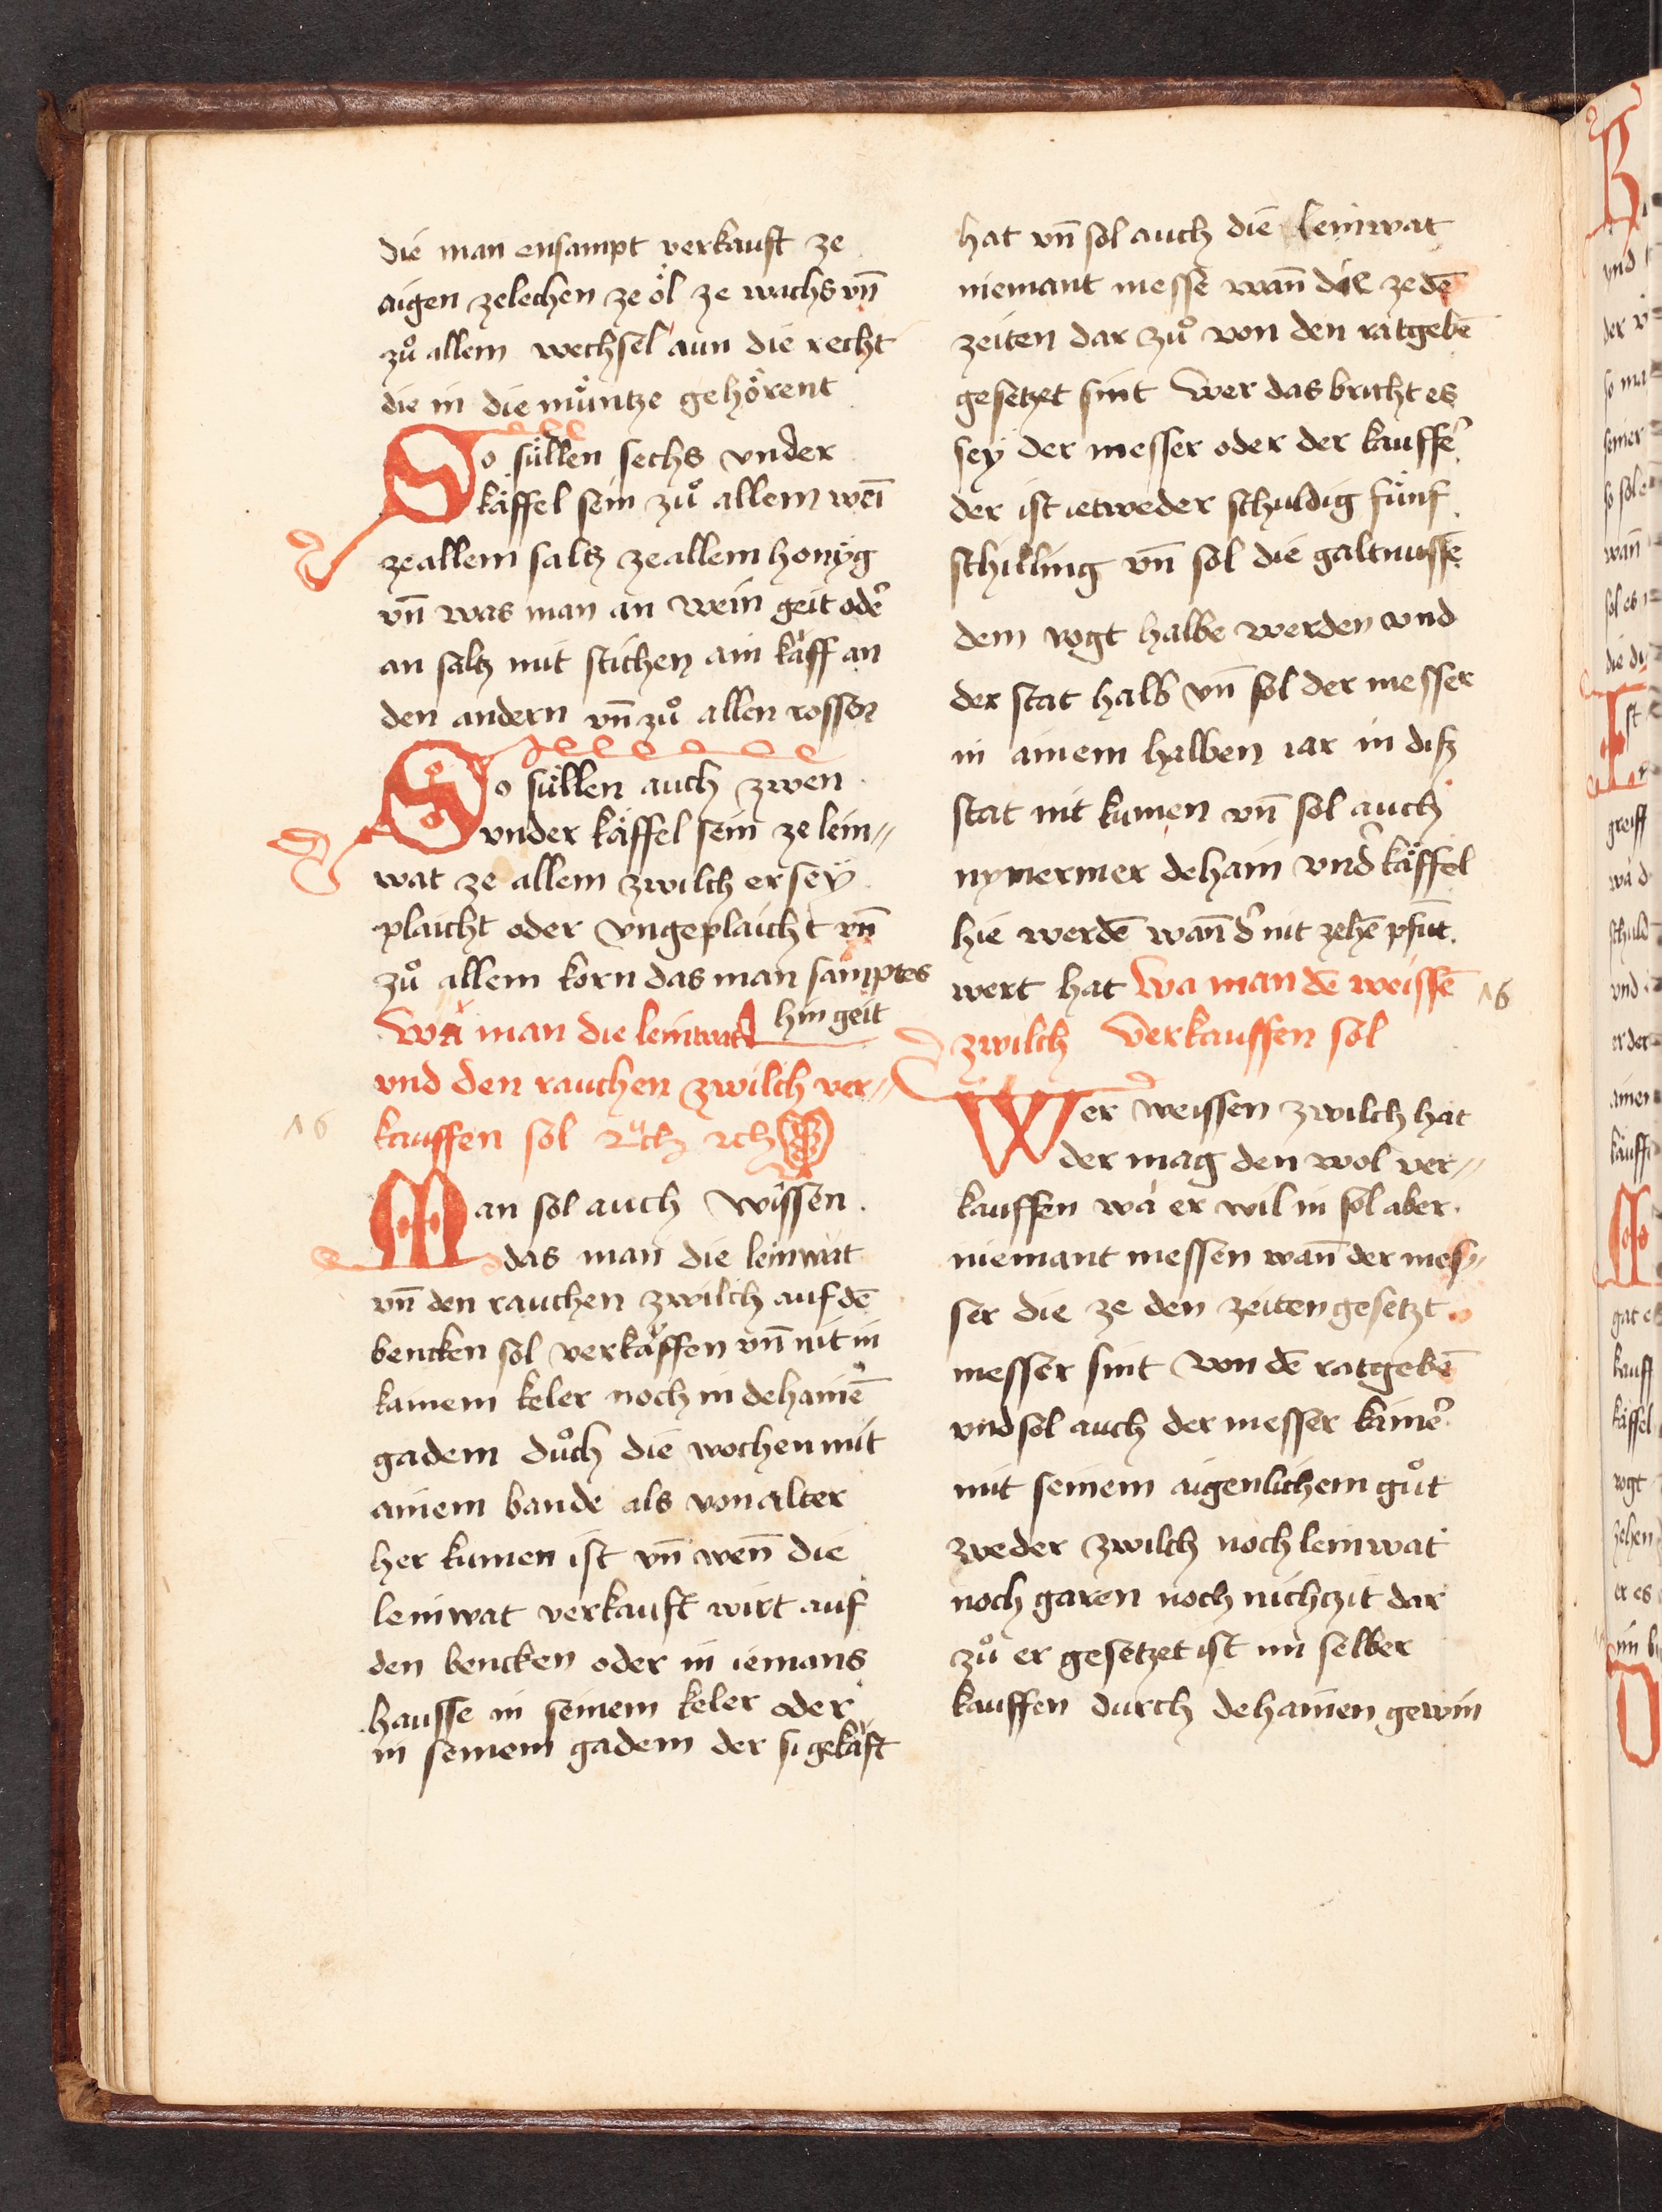 die man ensampt verkauft ze
aigen zelechen ze öl ze wachs vn̄
zů allem wechsel aun die recht
die in die müntze gehörent
So süllen sechs vnder
käffel sein zů allem wei̅
ze allem saltz ze allem honÿg
vn̄ was man an wein geit odeͬ
an saltz mit stichen ain käff an
den andern vn̄ zů allen rossen
So süllen auch zwen
vnder käffel sein ze lein〃
wat ze allem zwilch er seÿ
plaicht oder vngeplaicht vn̄
zů allem korn das man samptes
hin geit
Wä man die leinwat
vnd den rauchen zwilch ver〃
kauffen sol
16
Man sol auch wissen
das man die leinwat
vn̄ den rauchen zwilch auf de̅
bencken sol verkäffen vn̄ nit in
kainem keler noch in dehaine̅
gadem důch die wochen mit
ainem bande als von alter
her kumen ist vn̄ wen̄ die
leinwat verkauft wirt auf
den bencken oder in iemans
hausse in seinem keler oder
in seinem gadem der si gekäft
hat vn̄ sol auch die leinwat
niemant messe̅ wan̄ die ze de̅
zeiten dar zů von den ratgebe̅
gesetzet sint Wer das bricht es
seÿ der messer oder der kauffeͬ
der ist ietweder schuldig fünf
schilling vn̄ sol die galtnusse
dem vogt halbe werden vnd
der stat halb vn̄ sol der messer
in ainem halben iar in disz
stat nit kumen vn̄ sol auch
nymermer dehain vndͬ käffel
hie werde̅ wan̄ dͬ nit zehe̅ pfūt
wert hat Wa man de̅ weisse̅
16
zwilch verkauffen sol
Wer weissen zwilch hat
der mag den wol ver〃
kauffen wä er wil in sol aber
niemant messen wan̄ der mes〃
ser die ze den zeiten gesetzt
messer sint von de̅ ratgebe̅
vnd sol auch der messer kaineͬ
mit seinem aigenlichem gůt
weder zwilch noch leinwat
noch garen noch nichczit dar
zů er gesetzet ist im selber
kauffen durch dehainen gewin